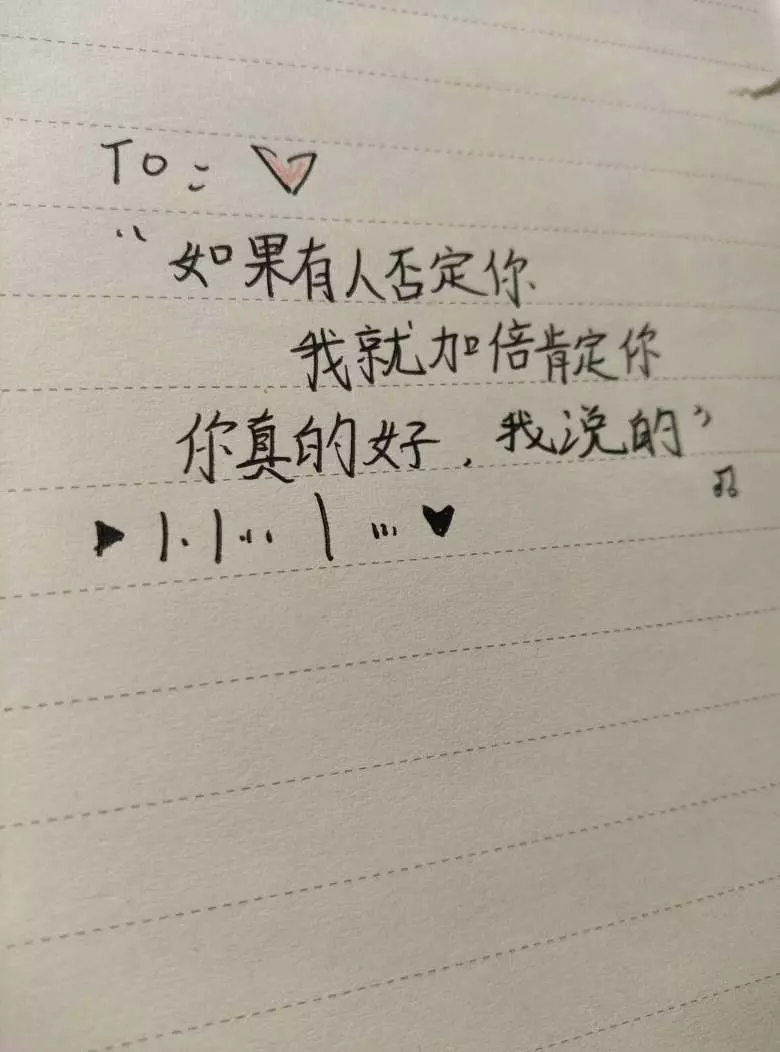 TO:
“如果有人否定你
我就加倍肯定你
你真的好，我说的”